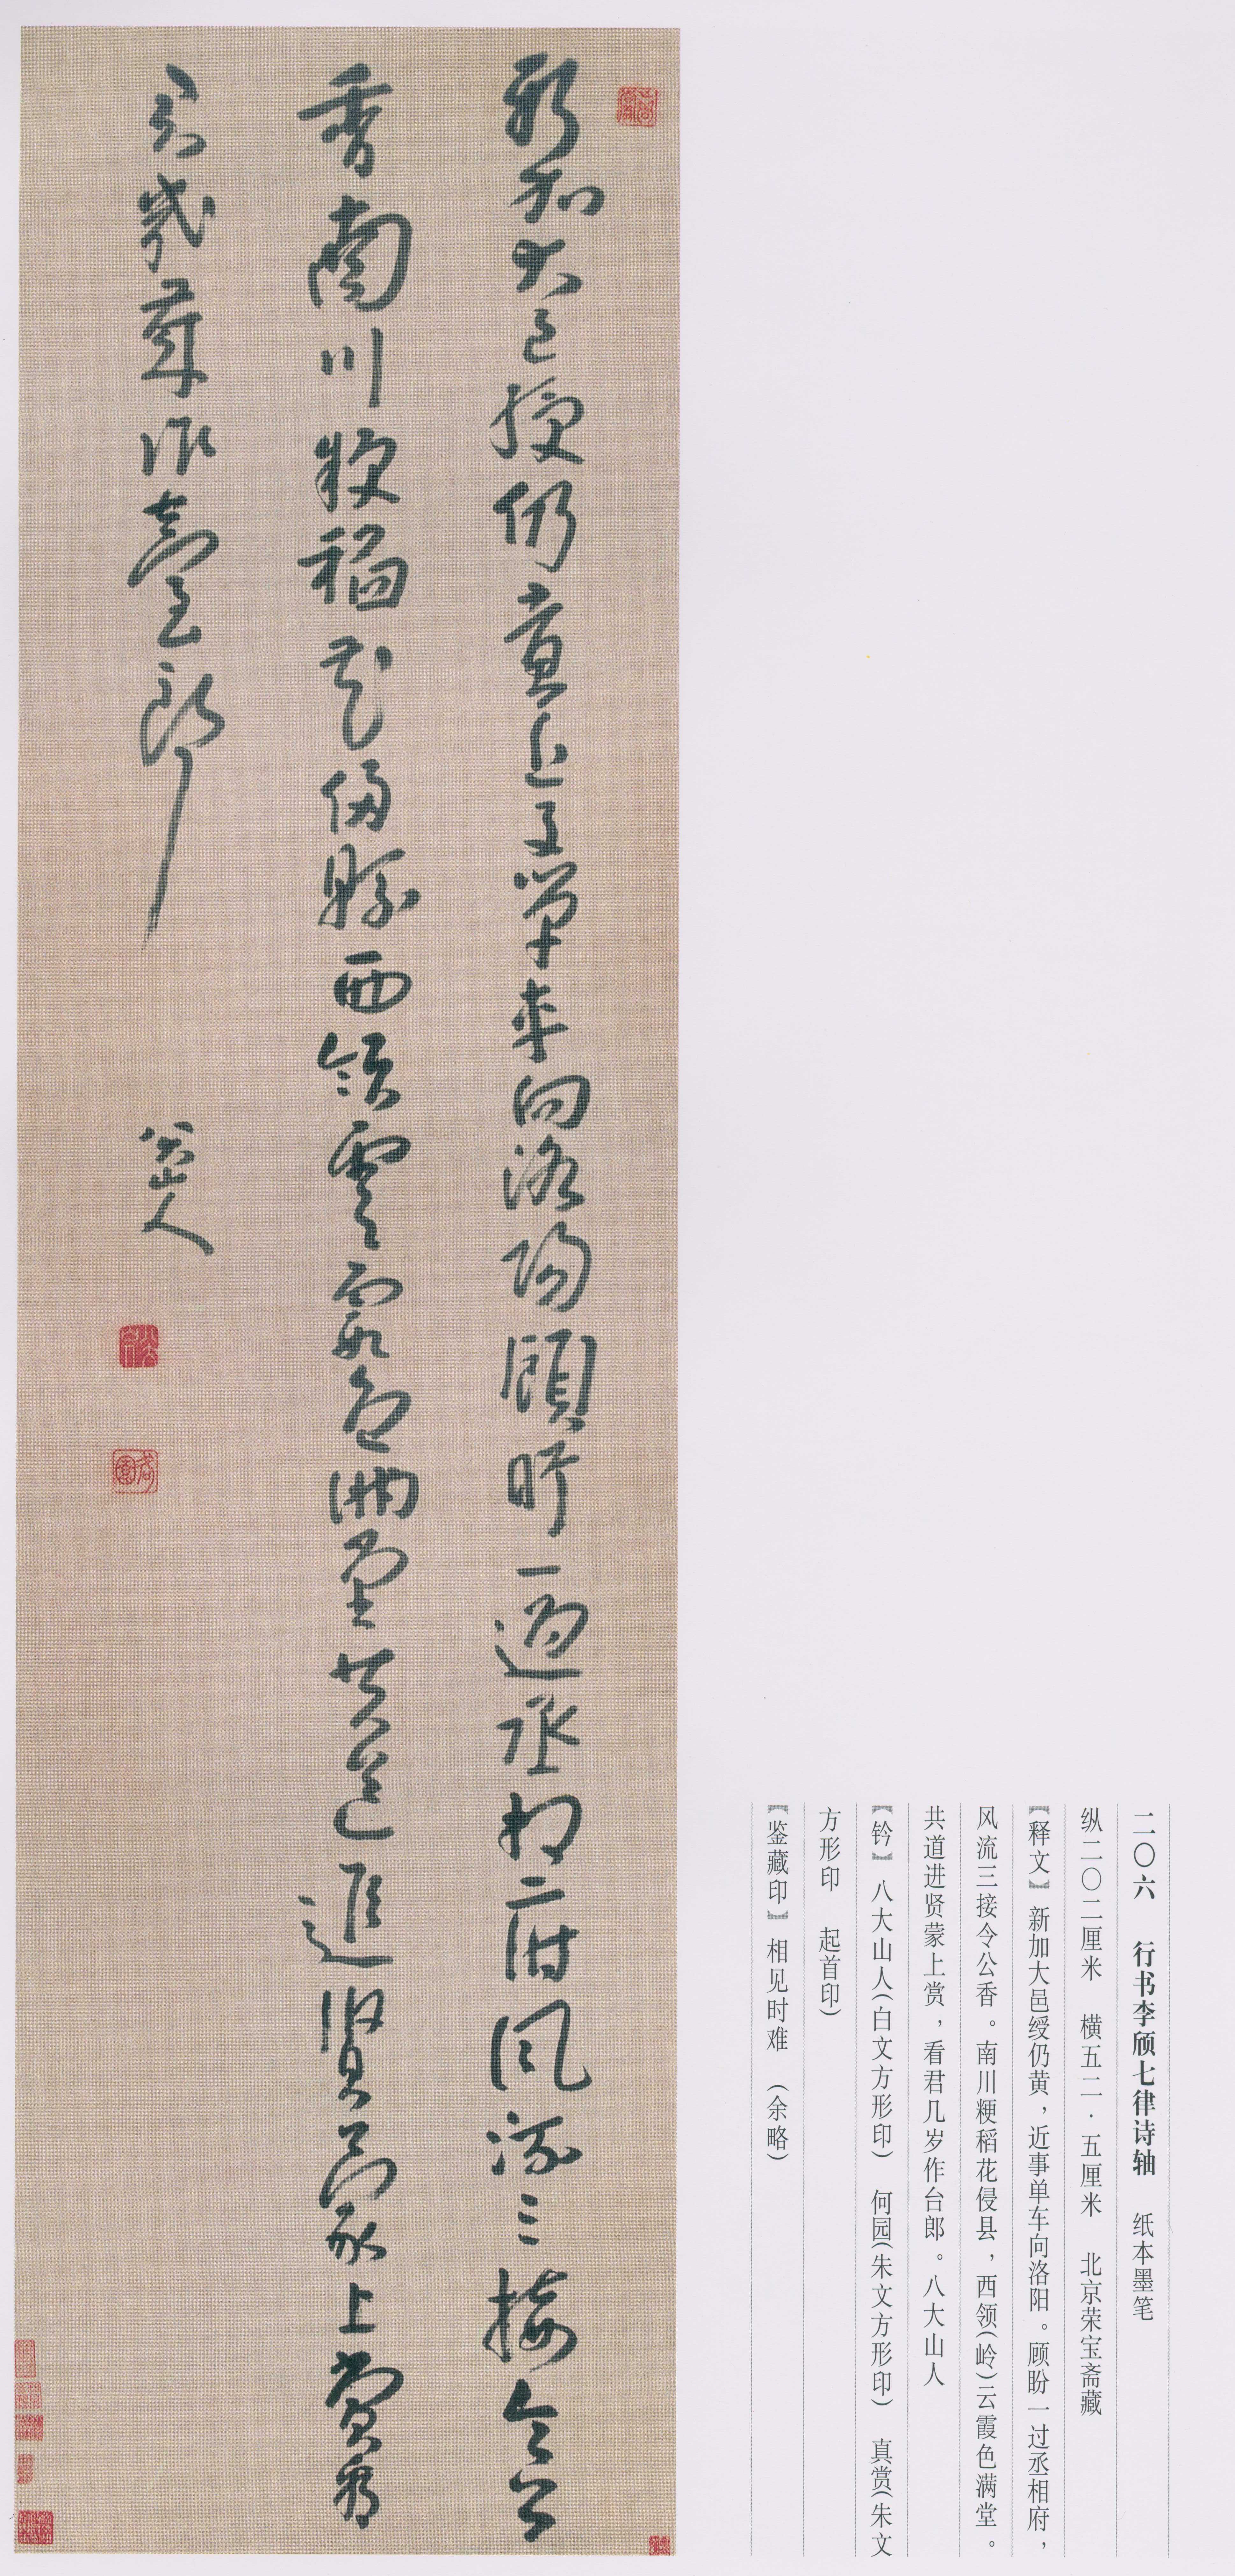 二〇六 行书李颀七律诗轴 纸本墨笔
纵二〇二厘米 横五二·五厘米 北京荣宝斋藏
【释文】新加大邑绶仍黄，近事单车向洛阳。顾盼一过丞相府，
风流三接令公香。南川粳稻花侵县，西领(岭)云霞色满堂。
共道进贤蒙上赏，看君几岁作台郎。八大山人
【钤】八大山人(白文方形印) 何园(朱文方形印) 真赏(朱文
方形印 起首印)
【鉴藏印】相见时难 (余略)
真賞
新加大邑綬仍黃近事單車向洛陽顧盼一過丞相府風流三接令公
香南川粳稻花侵縣西領雲霞色滿堂共道進賢蒙上賞看
君幾歲作臺郎
八大山人
八大山人
何園